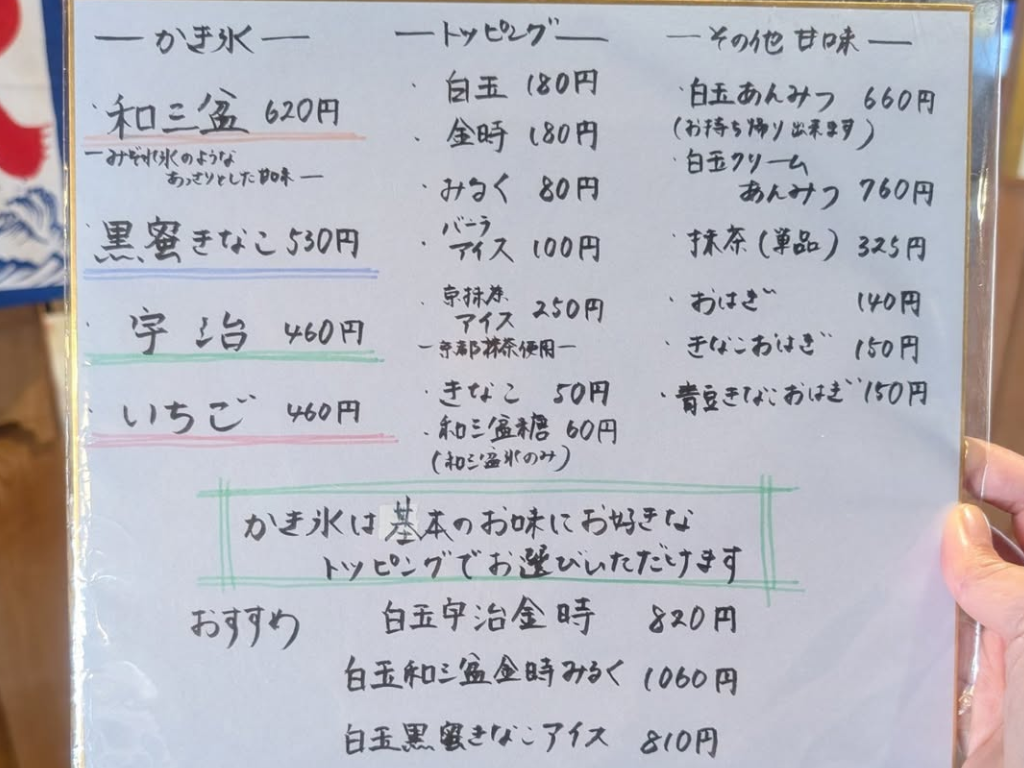 ― かき氷 ―
・和三盆 620円
―みぞれ氷のような
あっさりとした甘味―
黒蜜きなこ 530円
・宇治 460円
・いちご 460円
― トッピング ―
・白玉 180円
・金時 180円
・みるく 80円
・バニラ
アイス 100円
・京抹茶
アイス 250円
―京都抹茶使用―
・きなこ 50円
・和三盆糖 60円
(和三盆氷のみ)
― その他 甘味 ―
・白玉あんみつ 660円
(お持ち帰り出来ます)
・白玉クリーム
あんみつ 760円
・抹茶(単品) 325円
・おはぎ 140円
・きなこおはぎ 150円
・青豆きなこおはぎ 150円
かき氷は基本のお味にお好きな
トッピングでお選びいただけます
おすすめ 白玉宇治金時 820円
白玉和三盆金時みるく 1060円
白玉黒蜜きなこアイス 810円